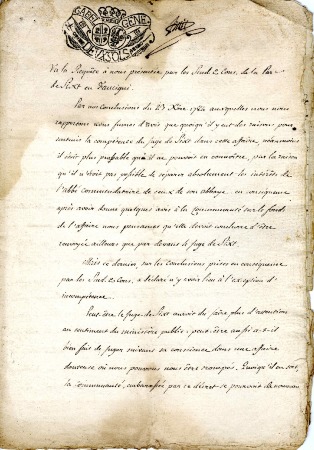 GABEL GENE
DE JASOLS
Vû la Requête à nous présentée par les Sind. & Cons. de la Par.
de Sixt en Faucigni
Par nos conclusions du 23 Xbre 1782 auxquelles nous nous
rapportons nous fumes d'avis que quoiqu'il y eut des raisons pour
soutenir la compétence du Juge de Sixt dans cette affaire, néanmoins
il étoit plus probable qu'il ne pouvoit en connoitre, par la raison
qu'il n'étoit pas possible de séparer absolument les intérêts de
l'abbé commendataire de ceux de son abbaye, en conséquence
après avoir donné quelques avis à la communauté sur le fonds
de l'affaire nous pensames qu'elle devoit conclure d'être
renvoyée ailleurs que par devant le Juge de Sixt
Mais ce dernier, sur les conclusions prises en conséquence
par les Sind. & Cons, a déclaré n'y avoir lieu à l'exception d'
incompétence.
Peut être le Juge de Sixt auroit dû faire plus d'attention
au sentiment du ministère public; peut être aussi a-t-il
bien fait de juger suivant sa conscience dans une affaire
douteuse où nous pouvons nous être trompés. Quoiqu'il en soit,
la communauté, embarassée par ce décret se pourvoit de nouveau